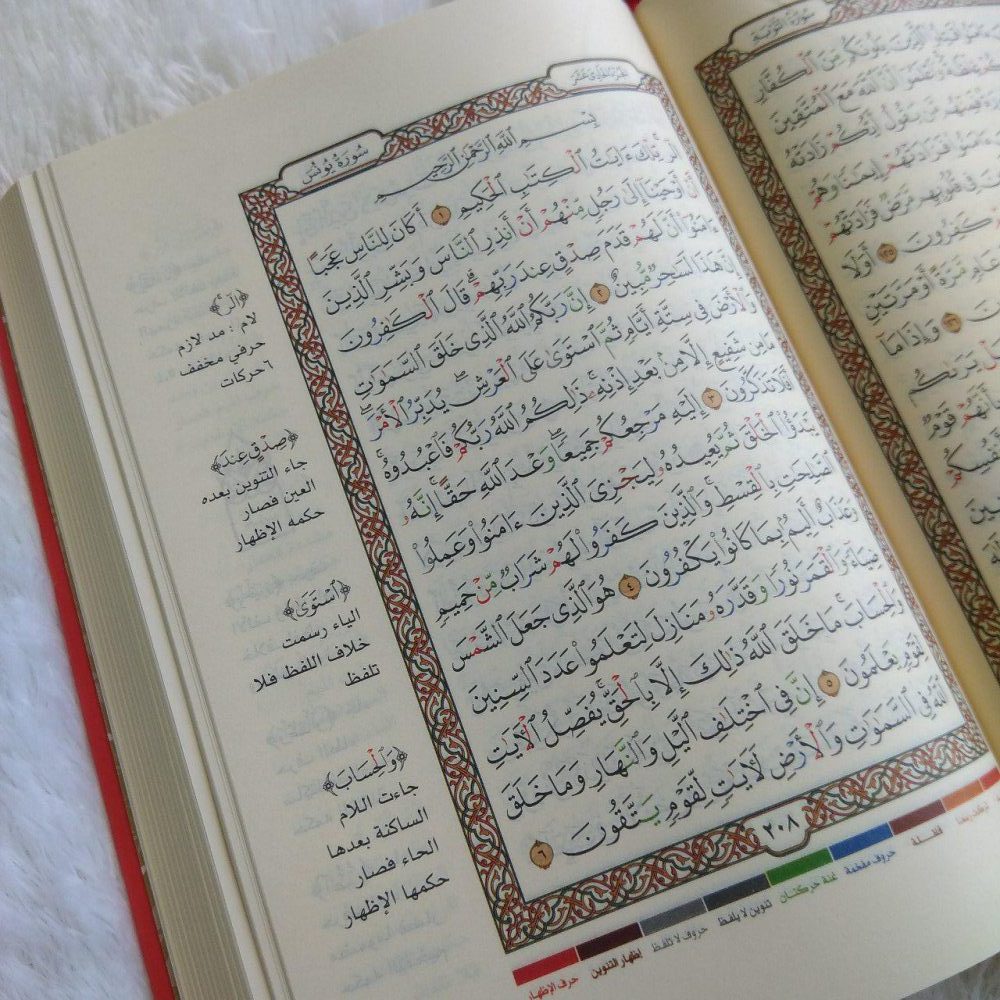 سُورَةُ يُونُسَ
بِسْمِ ٱللَّهِ ٱلرَّحْمَٰنِ ٱلرَّحِيمِ
الٓر تِلْكَ ءَايَٰتُ ٱلْكِتَٰبِ ٱلْحَكِيمِ ١ أَكَانَ لِلنَّاسِ عَجَبًا
أَنْ أَوْحَيْنَآ إِلَىٰ رَجُلٍ مِّنْهُمْ أَنْ أَنذِرِ ٱلنَّاسَ وَبَشِّرِ ٱلَّذِينَ
ءَامَنُوٓا۟ أَنَّ لَهُمْ قَدَمَ صِدْقٍ عِندَ رَبِّهِمْ ۗ قَالَ ٱلْكَٰفِرُونَ
هَٰذَا لَسَٰحِرٌ مُّبِينٌ ٢ إِنَّ رَبَّكُمُ ٱللَّهُ ٱلَّذِى خَلَقَ ٱلسَّمَٰوَٰتِ
وَٱلْأَرْضَ فِى سِتَّةِ أَيَّامٍ ثُمَّ ٱسْتَوَىٰ عَلَى ٱلْعَرْشِ ۖ يُدَبِّرُ ٱلْأَمْرَ ۖ
مَا مِن شَفِيعٍ إِلَّا مِنۢ بَعْدِ إِذْنِهِۦ ۚ ذَٰلِكُمُ ٱللَّهُ رَبُّكُمْ فَٱعْبُدُوهُ ۚ
أَفَلَا تَذَكَّرُونَ ٣ إِلَيْهِ مَرْجِعُكُمْ جَمِيعًا ۖ وَعْدَ ٱللَّهِ حَقًّا ۚ إِنَّهُۥ
يَبْدَؤُا۟ ٱلْخَلْقَ ثُمَّ يُعِيدُهُۥ لِيَجْزِىَ ٱلَّذِينَ ءَامَنُوا۟ وَعَمِلُوا۟
ٱلصَّٰلِحَٰتِ بِٱلْقِسْطِ ۚ وَٱلَّذِينَ كَفَرُوا۟ لَهُمْ شَرَابٌ مِّنْ حَمِيمٍ
وَعَذَابٌ أَلِيمٌۢ بِمَا كَانُوا۟ يَكْفُرُونَ ٤ هُوَ ٱلَّذِى جَعَلَ ٱلشَّمْسَ
ضِيَآءً وَٱلْقَمَرَ نُورًا وَقَدَّرَهُۥ مَنَازِلَ لِتَعْلَمُوا۟ عَدَدَ ٱلسِّنِينَ
وَٱلْحِسَابَ ۚ مَا خَلَقَ ٱللَّهُ ذَٰلِكَ إِلَّا بِٱلْحَقِّ ۚ يُفَصِّلُ ٱلْءَايَٰتِ
لِقَوْمٍ يَعْلَمُونَ ٥ إِنَّ فِى ٱخْتِلَٰفِ ٱلَّيْلِ وَٱلنَّهَارِ وَمَا خَلَقَ
ٱللَّهُ فِى ٱلسَّمَٰوَٰتِ وَٱلْأَرْضِ لَءَايَٰتٍ لِّقَوْمٍ يَتَّقُونَ ٦
٢٠٨
﴿الٓر﴾
لام : مد لازم
حرفي مخفف
٦ حركات
﴿صِدْقٍ عِندَ﴾
جاء التنوين بعده
العين فصار
حكمه الإظهار
﴿ٱسْتَوَىٰ﴾
الياء رسمت
خلاف اللفظ فلا
تلفظ
﴿وَٱلْحِسَابَ﴾
جاءت اللام
الساكنة بعدها
الحاء فصار
حكمها الإظهار
حرف الإظهار
إظهار التنوين
حروف لا تلفظ
تنوين لا يلفظ
غنة حركتان
حروف مفخمة
قلقلة
سُورَةُ التَّوْبَةِ